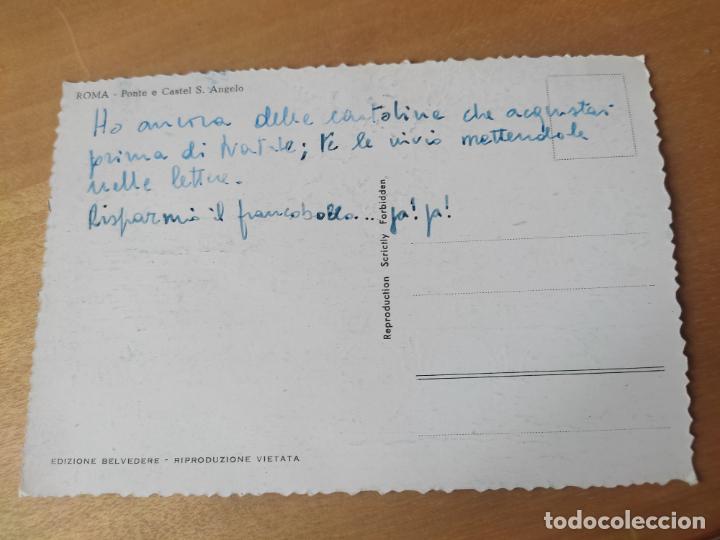 ROMA - Ponte e Castel S. Angelo
Ho ancora delle cartoline che acquistai
prima di Natale; te le invio mettendole
nelle lettere.
Risparmio il francobollo... ja! ja!
Reproduction Scrictly Forbidden
EDIZIONE BELVEDERE - RIPRODUZIONE VIETATA
todocoleccion.net